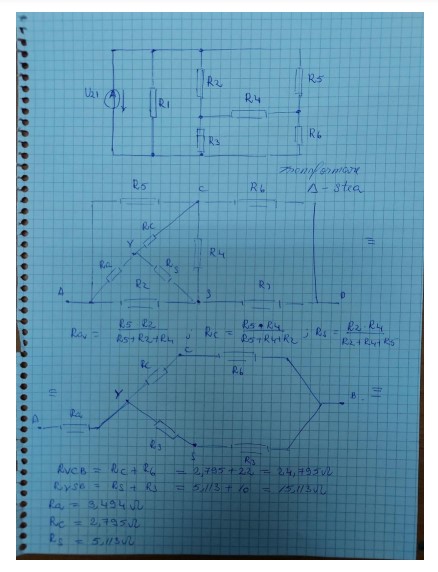 R2
R5
U21
R1
R4
R3
R6
Δ-stea
R5
C
R6
Rc
Y
R4
=
Ra
Rs
A
R2
S
R3
B
Ra = R5 R2 / R5+R2+R4 ; Rc = R5•R4 / R5+R4+R2 ; Rs = R2 R4 / R2+R4+R5
C
Rc
R6
=
Y
B. =
A
Ra
R3
S
R3
RYCB = Rc + R6 = 2,795+22 = 24,795Ω
RYSB = Rs + R3 = 5,113+10 = 15,113Ω
Ra = 9,494Ω
Rc = 2,795Ω
Rs = 5,113Ω